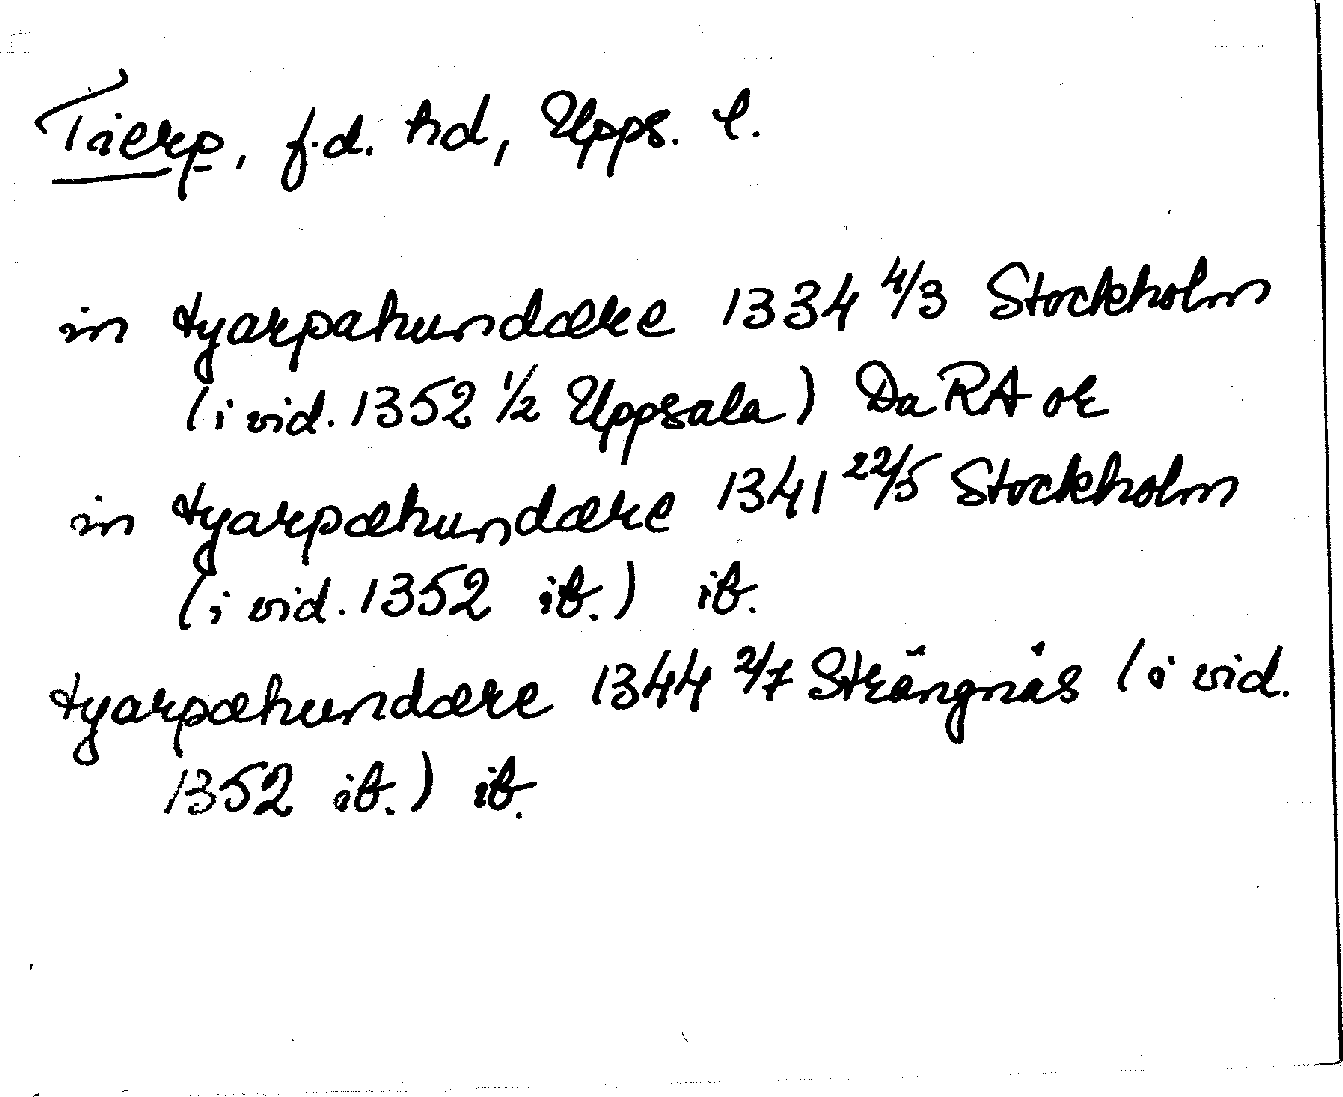 Tierp, f.d. hd, Upps. l.
in tyarpahundære 1334 4/3 Stockholm
(i vid. 1352 1/2 Uppsala) Da RA or
in tyarpæhundære 1341 22/5 Stockholm
(i vid. 1352 ib.) ib.
tyarpæhundære 1344 2/7 Strängnäs (i vid.
1352 ib.) ib.